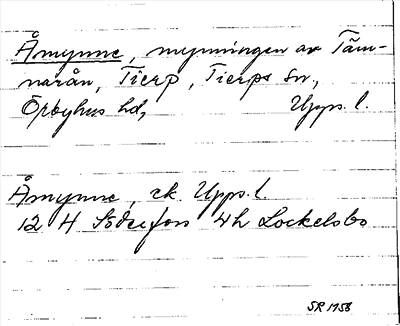 Åmynne, mynningen av Täm-
narån, Tierp, Tierps sn.,
Örbyhus hd, Upps. l.
Åmynne, ek. Upps. l.
12 H Söderfors 4h Lockelsbo
SR 1958